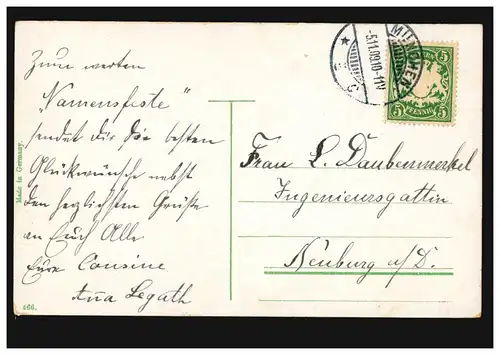 Zum werten
"Namensfeste"
sendet Dir die besten
Glückwünsche nebst
den herzlichsten Grüße
an Euch Alle
Eure Cousine
Anna Legath
Made in Germany.
466.
MÜNCHEN
-5.11.09.10-11V
5 5
PFENNIG
5 5
Frau L. Daubenmerkel
Ingenieursgattin
Neuburg a/D.